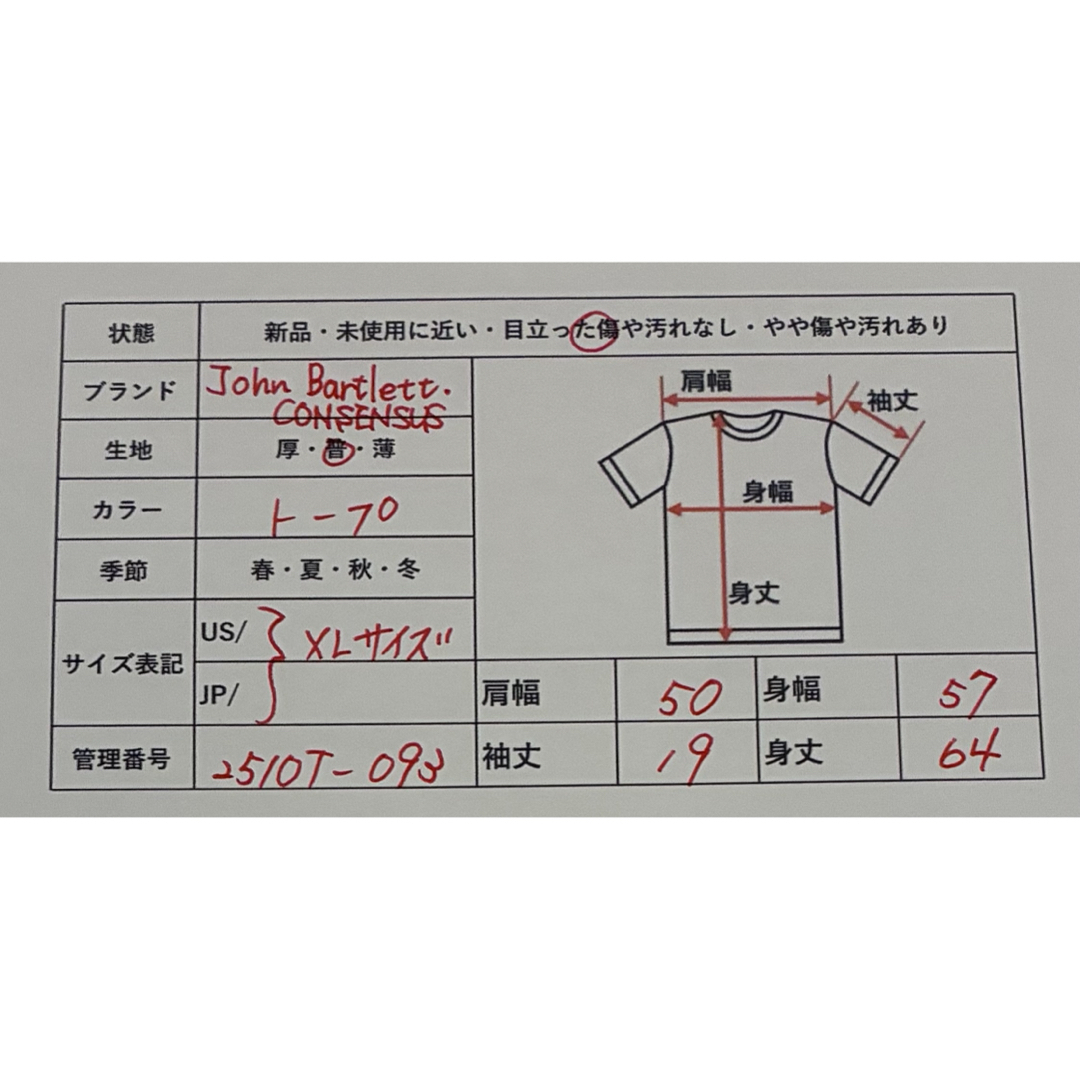 状態 新品・未使用に近い・目立った傷や汚れなし・やや傷や汚れあり
ブランド John Bartlett. CONSENSUS
生地 厚・普・薄
カラー トープ
季節 春・夏・秋・冬
サイズ表記 US/ XLサイズ
JP/
管理番号 2510T-093
肩幅
袖丈
身幅
身丈
肩幅 50 身幅 57
袖丈 19 身丈 64